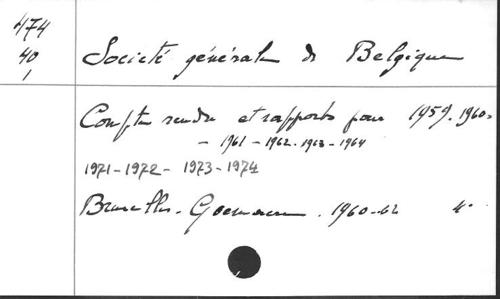 474
40
1
Société générale de Belgique
Compte rendu et rapports pour 1959. 1960-
- 1961 - 1962-1963-1964
1971-1972- 1973-1974
Bruxelles. Goemaere. 1960-62 4°